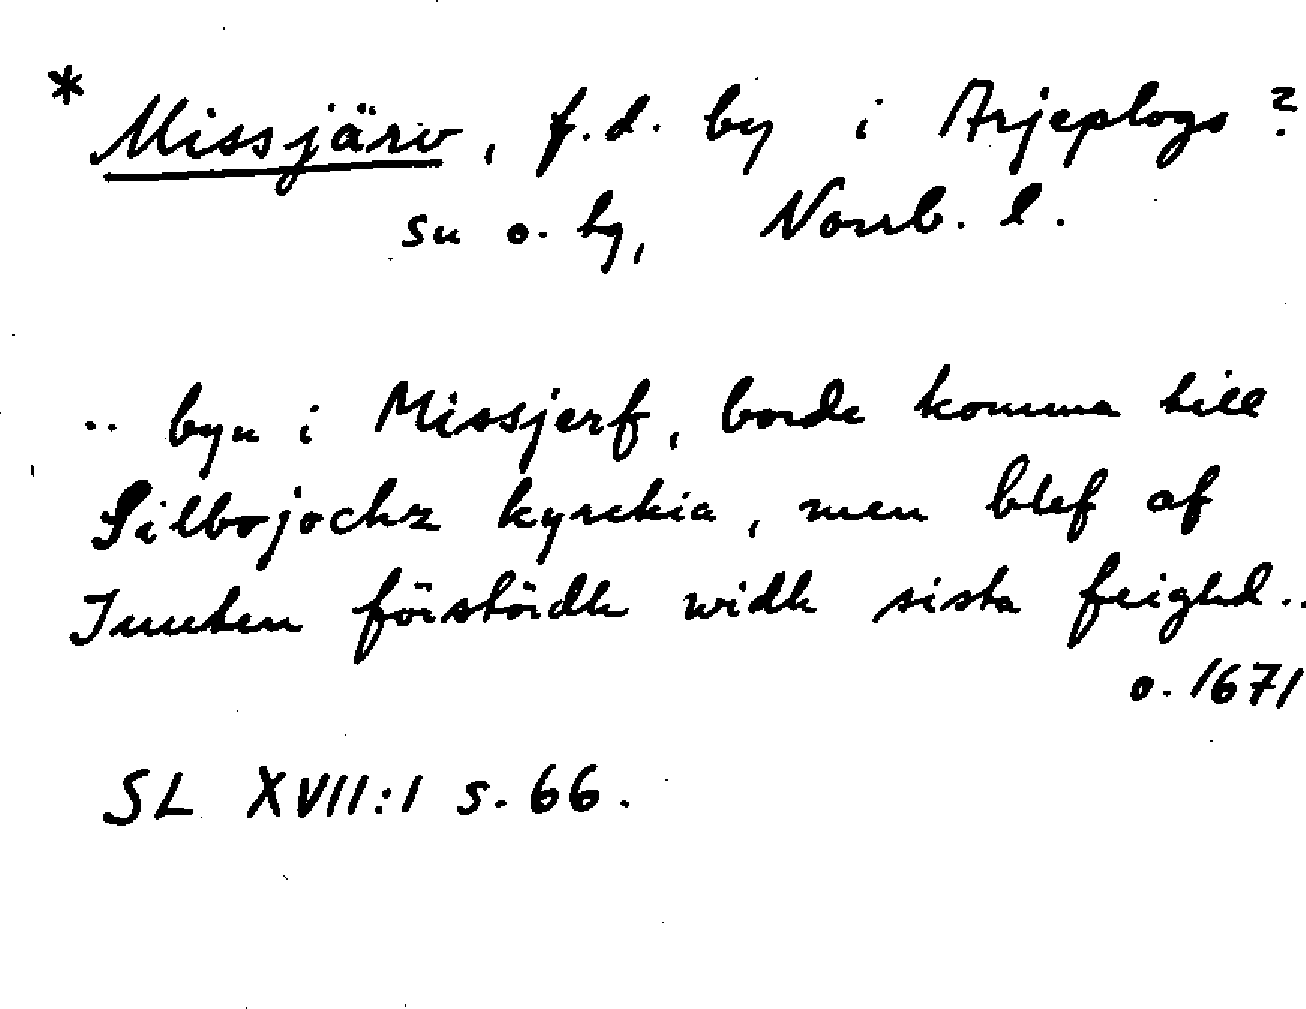 * Missjärv, f.d. by i Arjeplogs ?
sn o. hg, Norrb. l.
.. byn i Missjerf, borde komma till
Silbojochz kyrckia, men blef af
Juuten förstördh widh sista feighd..
o. 1671
SL XVII:1 s. 66.